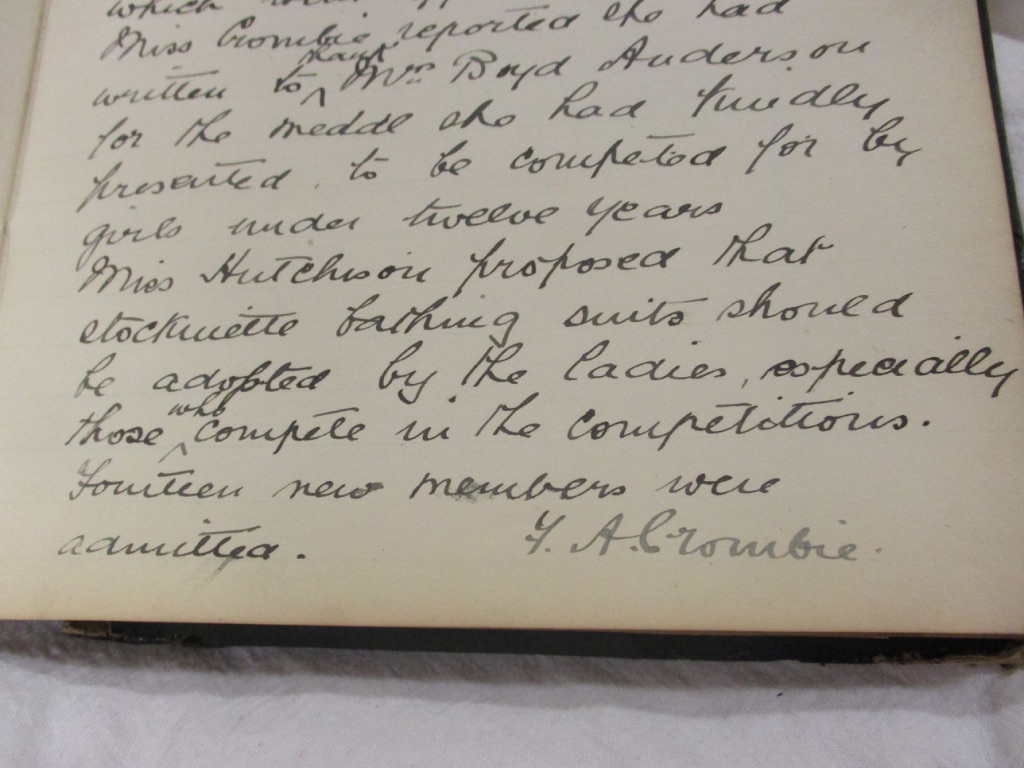 which
Miss Crombie reported she had
written to thank Mrs Boyd Anderson
for the medal she had kindly
presented, to be competed for by
girls under twelve years
Miss Hutchison proposed that
stockinette bathing suits should
be adopted by the ladies, especially
those who compete in the competitions.
Fourteen new members were
admitted. F. A. Crombie.